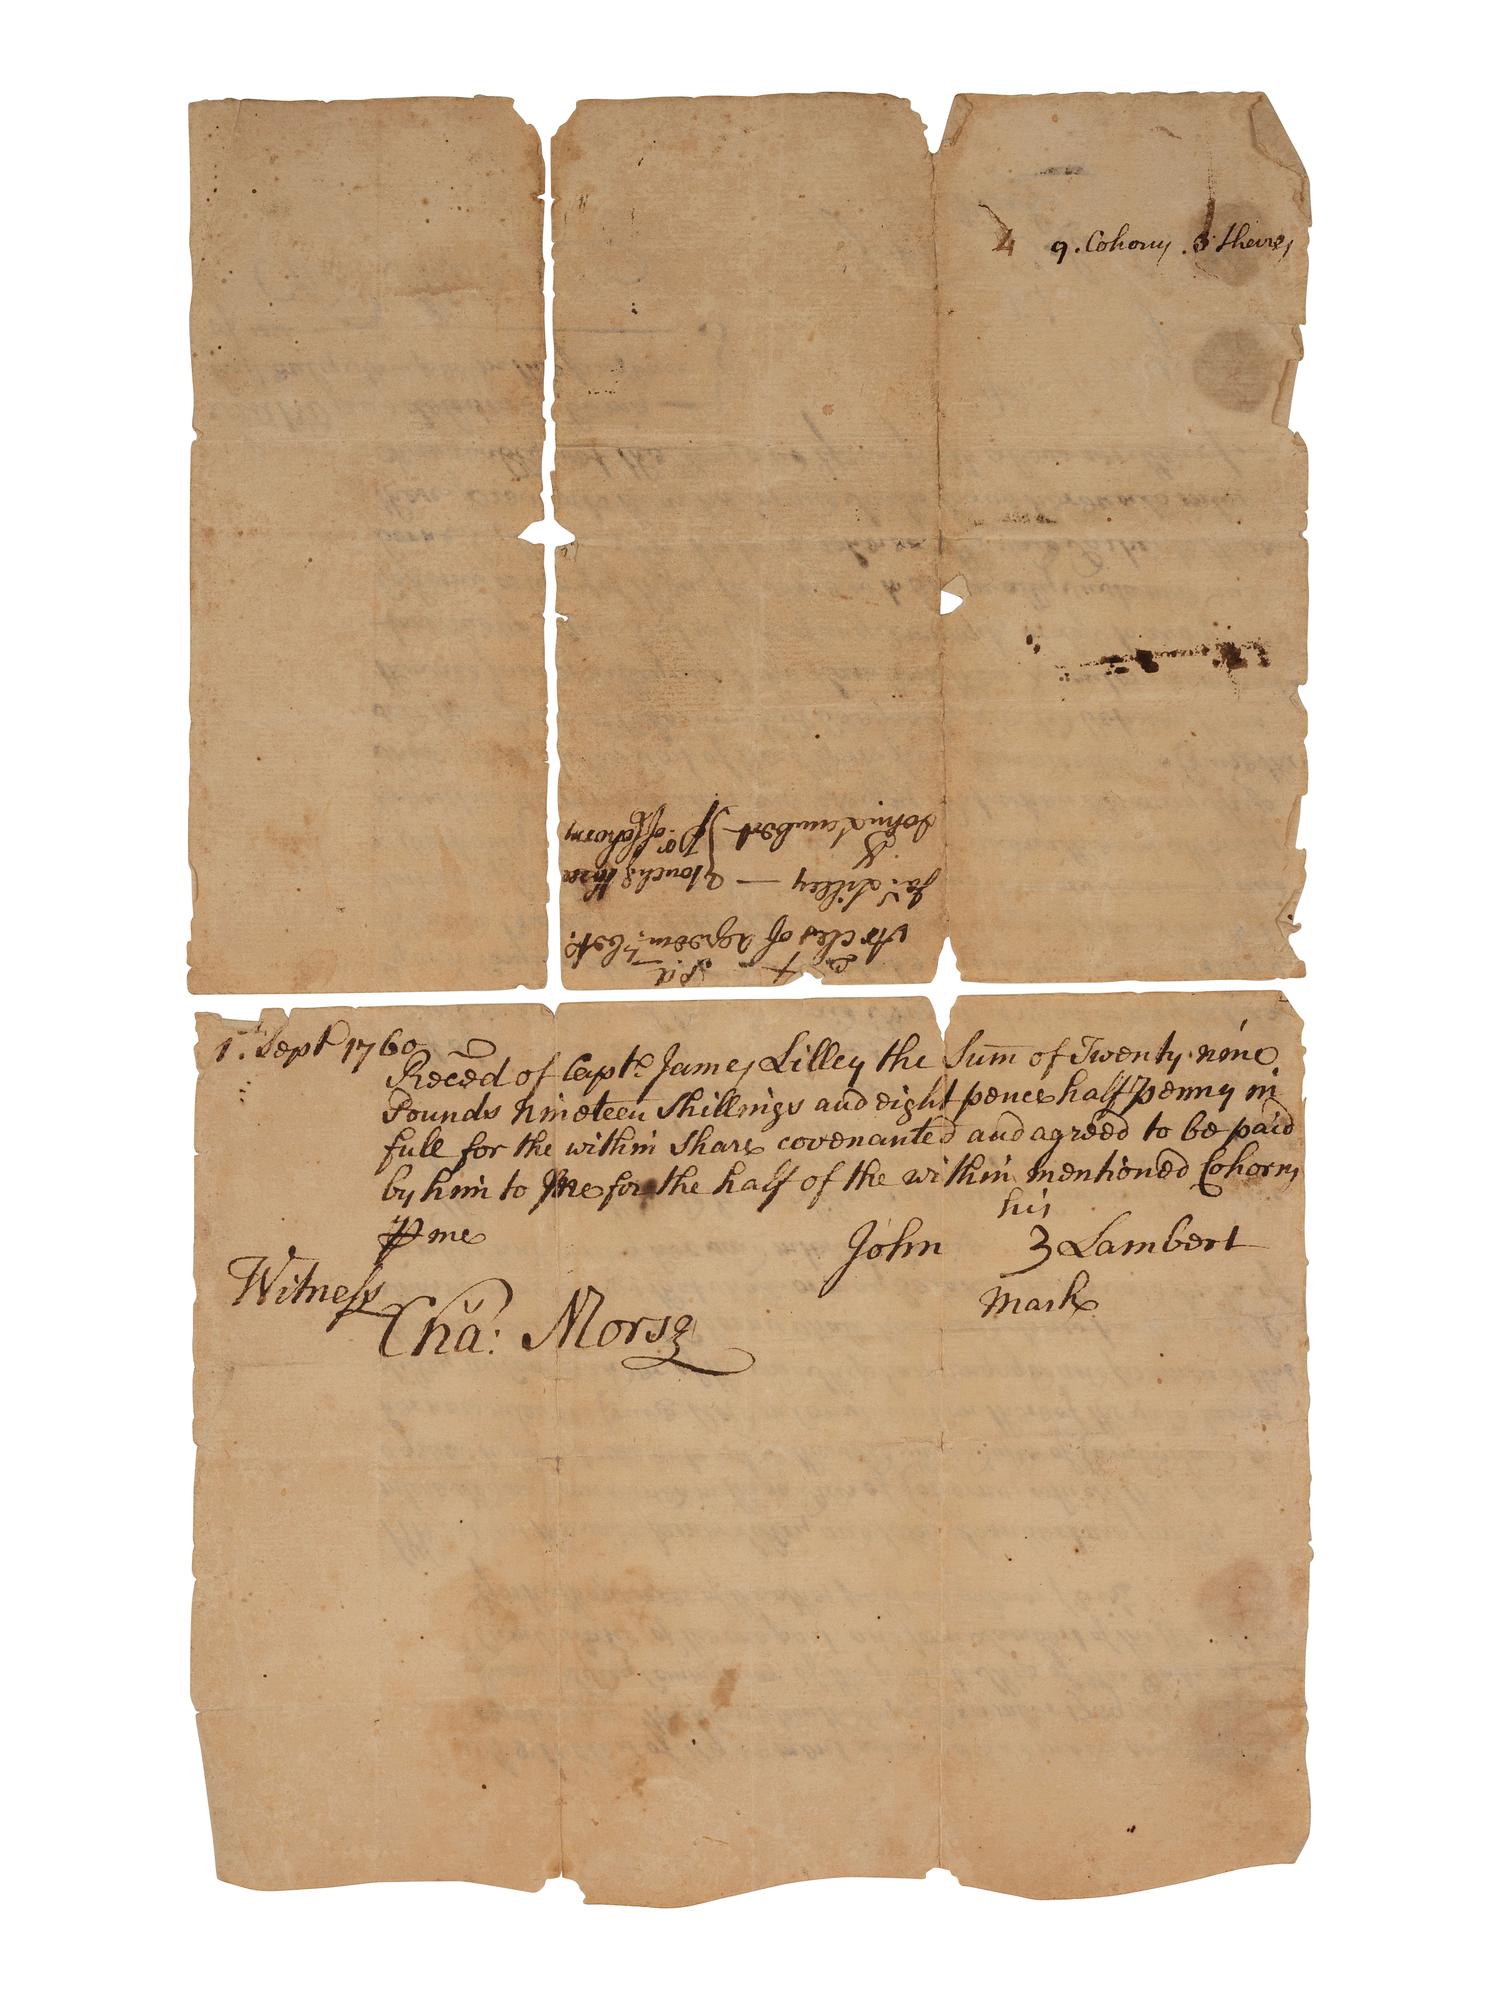 4 9. Cohorny .
Artcles of agreemt. bet.
Jas. Lilley —
& 
John Lambert
pr. of Cohorny
1st. Sept 1760
Reced of Capt. James Lilley the Sum of Twenty nine
Pounds Nineteen Shillings and eight pence half penny in
full for the within Share covenanted and agreed to be paid
by him to Me for the half of the within mentioned Cohorny
P me
his
John 3 Lambert
mark
Witness
Cha: Morse